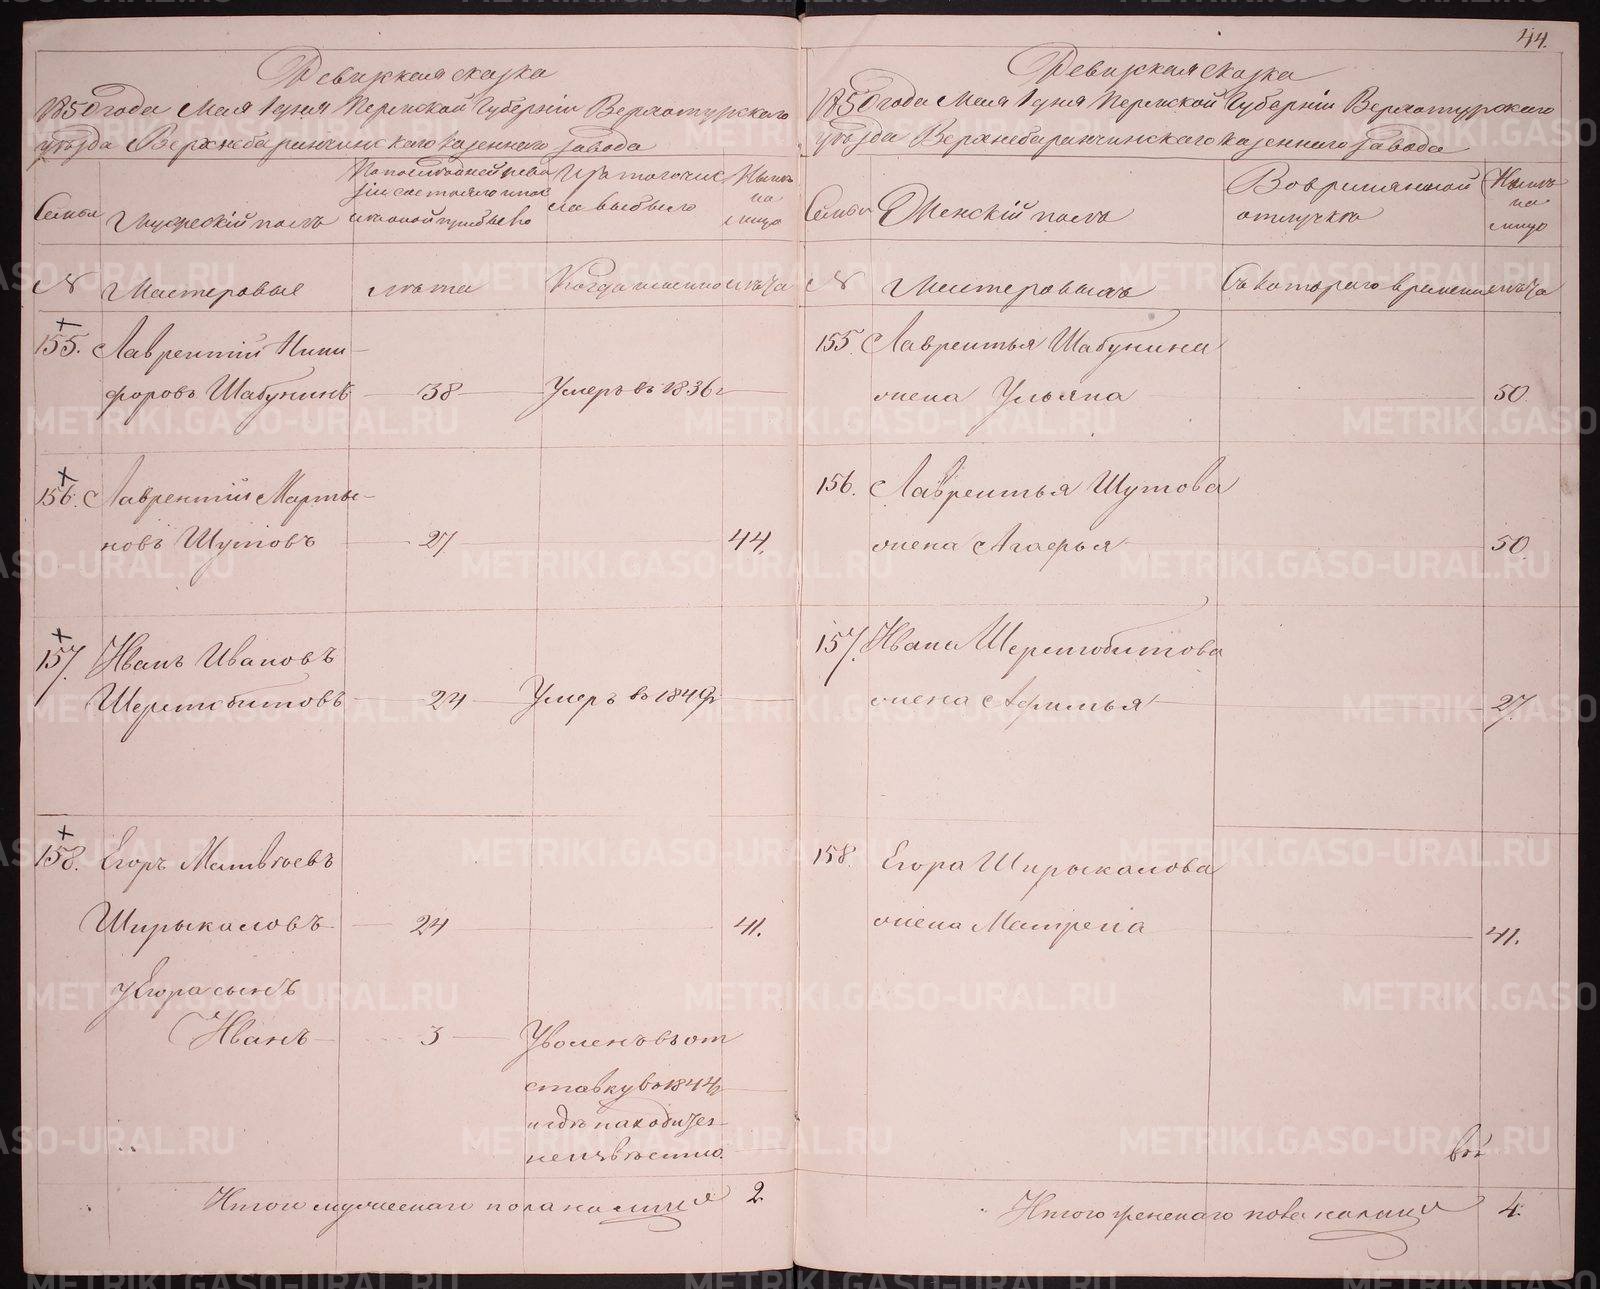 Ревизская сказка
1850 года Мая 1 дня Пермской Губерніи Верхотурскаго
уѣзда Верхнебаранчинскаго казеннаго завода
Семьи
Мужескій полъ
По последней реви
зіи состояло и пос
ле оной прибыло
Изъ того чис
ла выбыло
Нынѣ
на
лицо
№
Мастеровые
лѣта
Когда именно
лѣта
155. Лаврентій Ники-
форовъ Шабунинъ 38 Умеръ въ 1836 г
156. Лаврентій Марты-
новъ Шутовъ 27 44.
157. Иванъ Ивановъ
Шерстобитовъ 24 Умеръ въ 1849 г
158. Егоръ Матвѣевъ
Ширыкаловъ 24 41.
у Егора сынъ
Иванъ 3 Уволенъ въ от
ставку въ 1844 г
и гдѣ находится
неизвѣстно.
Итого мужескаго пола на лицо 2.
44.
Ревизская сказка
1850 года Мая 1 дня Пермской Губерніи Верхотурскаго
уѣзда Верхнебаранчинскаго казеннаго завода
Семьи
Женскій полъ
Во временной
отлучкѣ
Нынѣ
на
лицо
№
Мастеровыхъ
Съ котораго времени
лѣта
155. Лаврентья Шабунина
жена Ульяна 50.
156. Лаврентья Шутова
жена Агафья 50.
157. Ивана Шерстобитова
жена Афимья 27.
158. Егора Ширыкалова
жена Матрена 41.
Итого женскаго пола на лицо 4.
METRIKI.GASO-URAL.RU